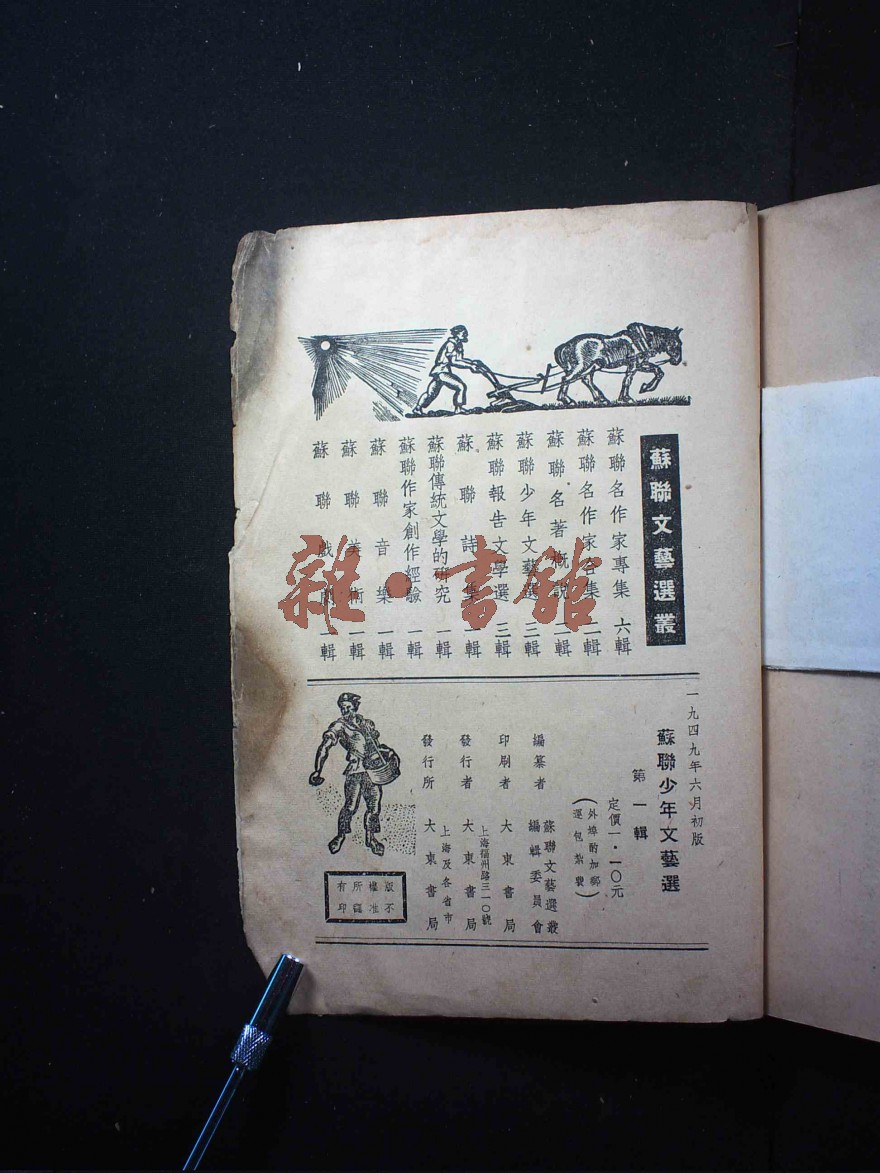 蘇聯文藝選叢
蘇聯名作家專集 六輯
蘇聯名作家合集 二輯
蘇聯名著概說 二輯
蘇聯少年文藝選 三輯
蘇聯報告文學選 三輯
蘇聯詩集 一輯
蘇聯傳統文學的研究 一輯
蘇聯作家創作經驗 一輯
蘇聯音樂 一輯
蘇聯美術 一輯
蘇聯戲 一輯
一九四九年六月初版
蘇聯少年文藝選
第一輯
定價一·一〇元
(外埠酌加郵
運包紮費)
編纂者 蘇聯文藝選叢
編輯委員會
印刷者 大東書局
上海福州路三一〇號
發行者 大東書局
上海及各省市
發行所 大東書局
版權所有
不准翻印
雜·書館